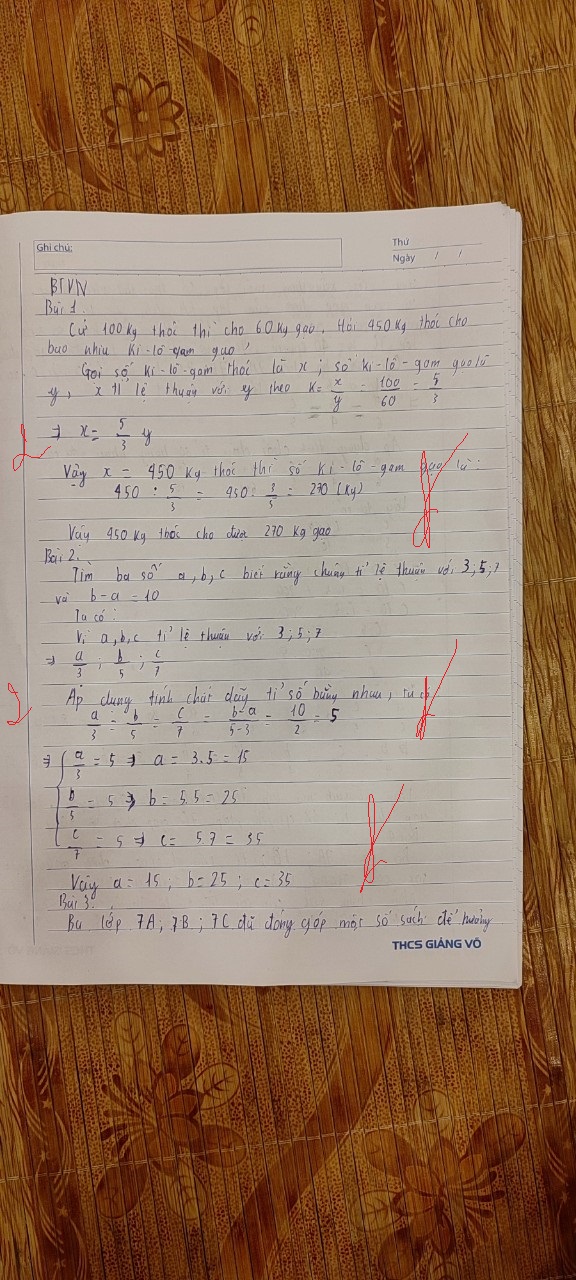 Ghi chú:
Thứ
Ngày / /
BTVN
Bài 1:
Cứ 100 kg thóc thì cho 60 kg gạo. Hỏi 450 kg thóc cho
bao nhiu ki-lô-gam gạo?
Gọi số ki-lô-gam thóc là x; số ki-lô-gam gạo là
y, x tỉ lệ thuận với y theo k = x/y = 100/60 = 5/3
2
⇒ x = 5/3 y
Vậy x = 450 kg thóc thì số ki-lô-gam gạo là:
450 : 5/3 = 450 . 3/5 = 270 (kg)
Vậy 450 kg thóc cho được 270 kg gạo
Bài 2:
Tìm ba số a, b, c biết rằng chúng tỉ lệ thuận với 3; 5; 7
và b - a = 10
Ta có:
Vì a, b, c tỉ lệ thuận với 3; 5; 7
⇒ a/3 ; b/5 ; c/7
2
Áp dụng tính chất dãy tỉ số bằng nhau, ta có
a/3 = b/5 = c/7 = b-a/5-3 = 10/2 = 5
⇒ { a/3 = 5 ⇒ a = 3.5 = 15
b/5 = 5 ⇒ b = 5.5 = 25
c/7 = 5 ⇒ c = 5.7 = 35
Vậy a = 15; b = 25; c = 35
Bài 3:
Ba lớp 7A; 7B; 7C đã đóng góp một số sách để hưởng
THCS GIẢNG VÕ